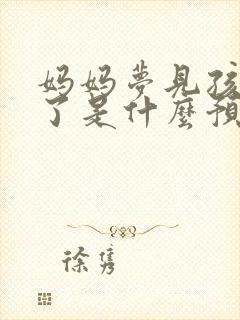 妈妈夢見孩
了是什麼預
徐隽